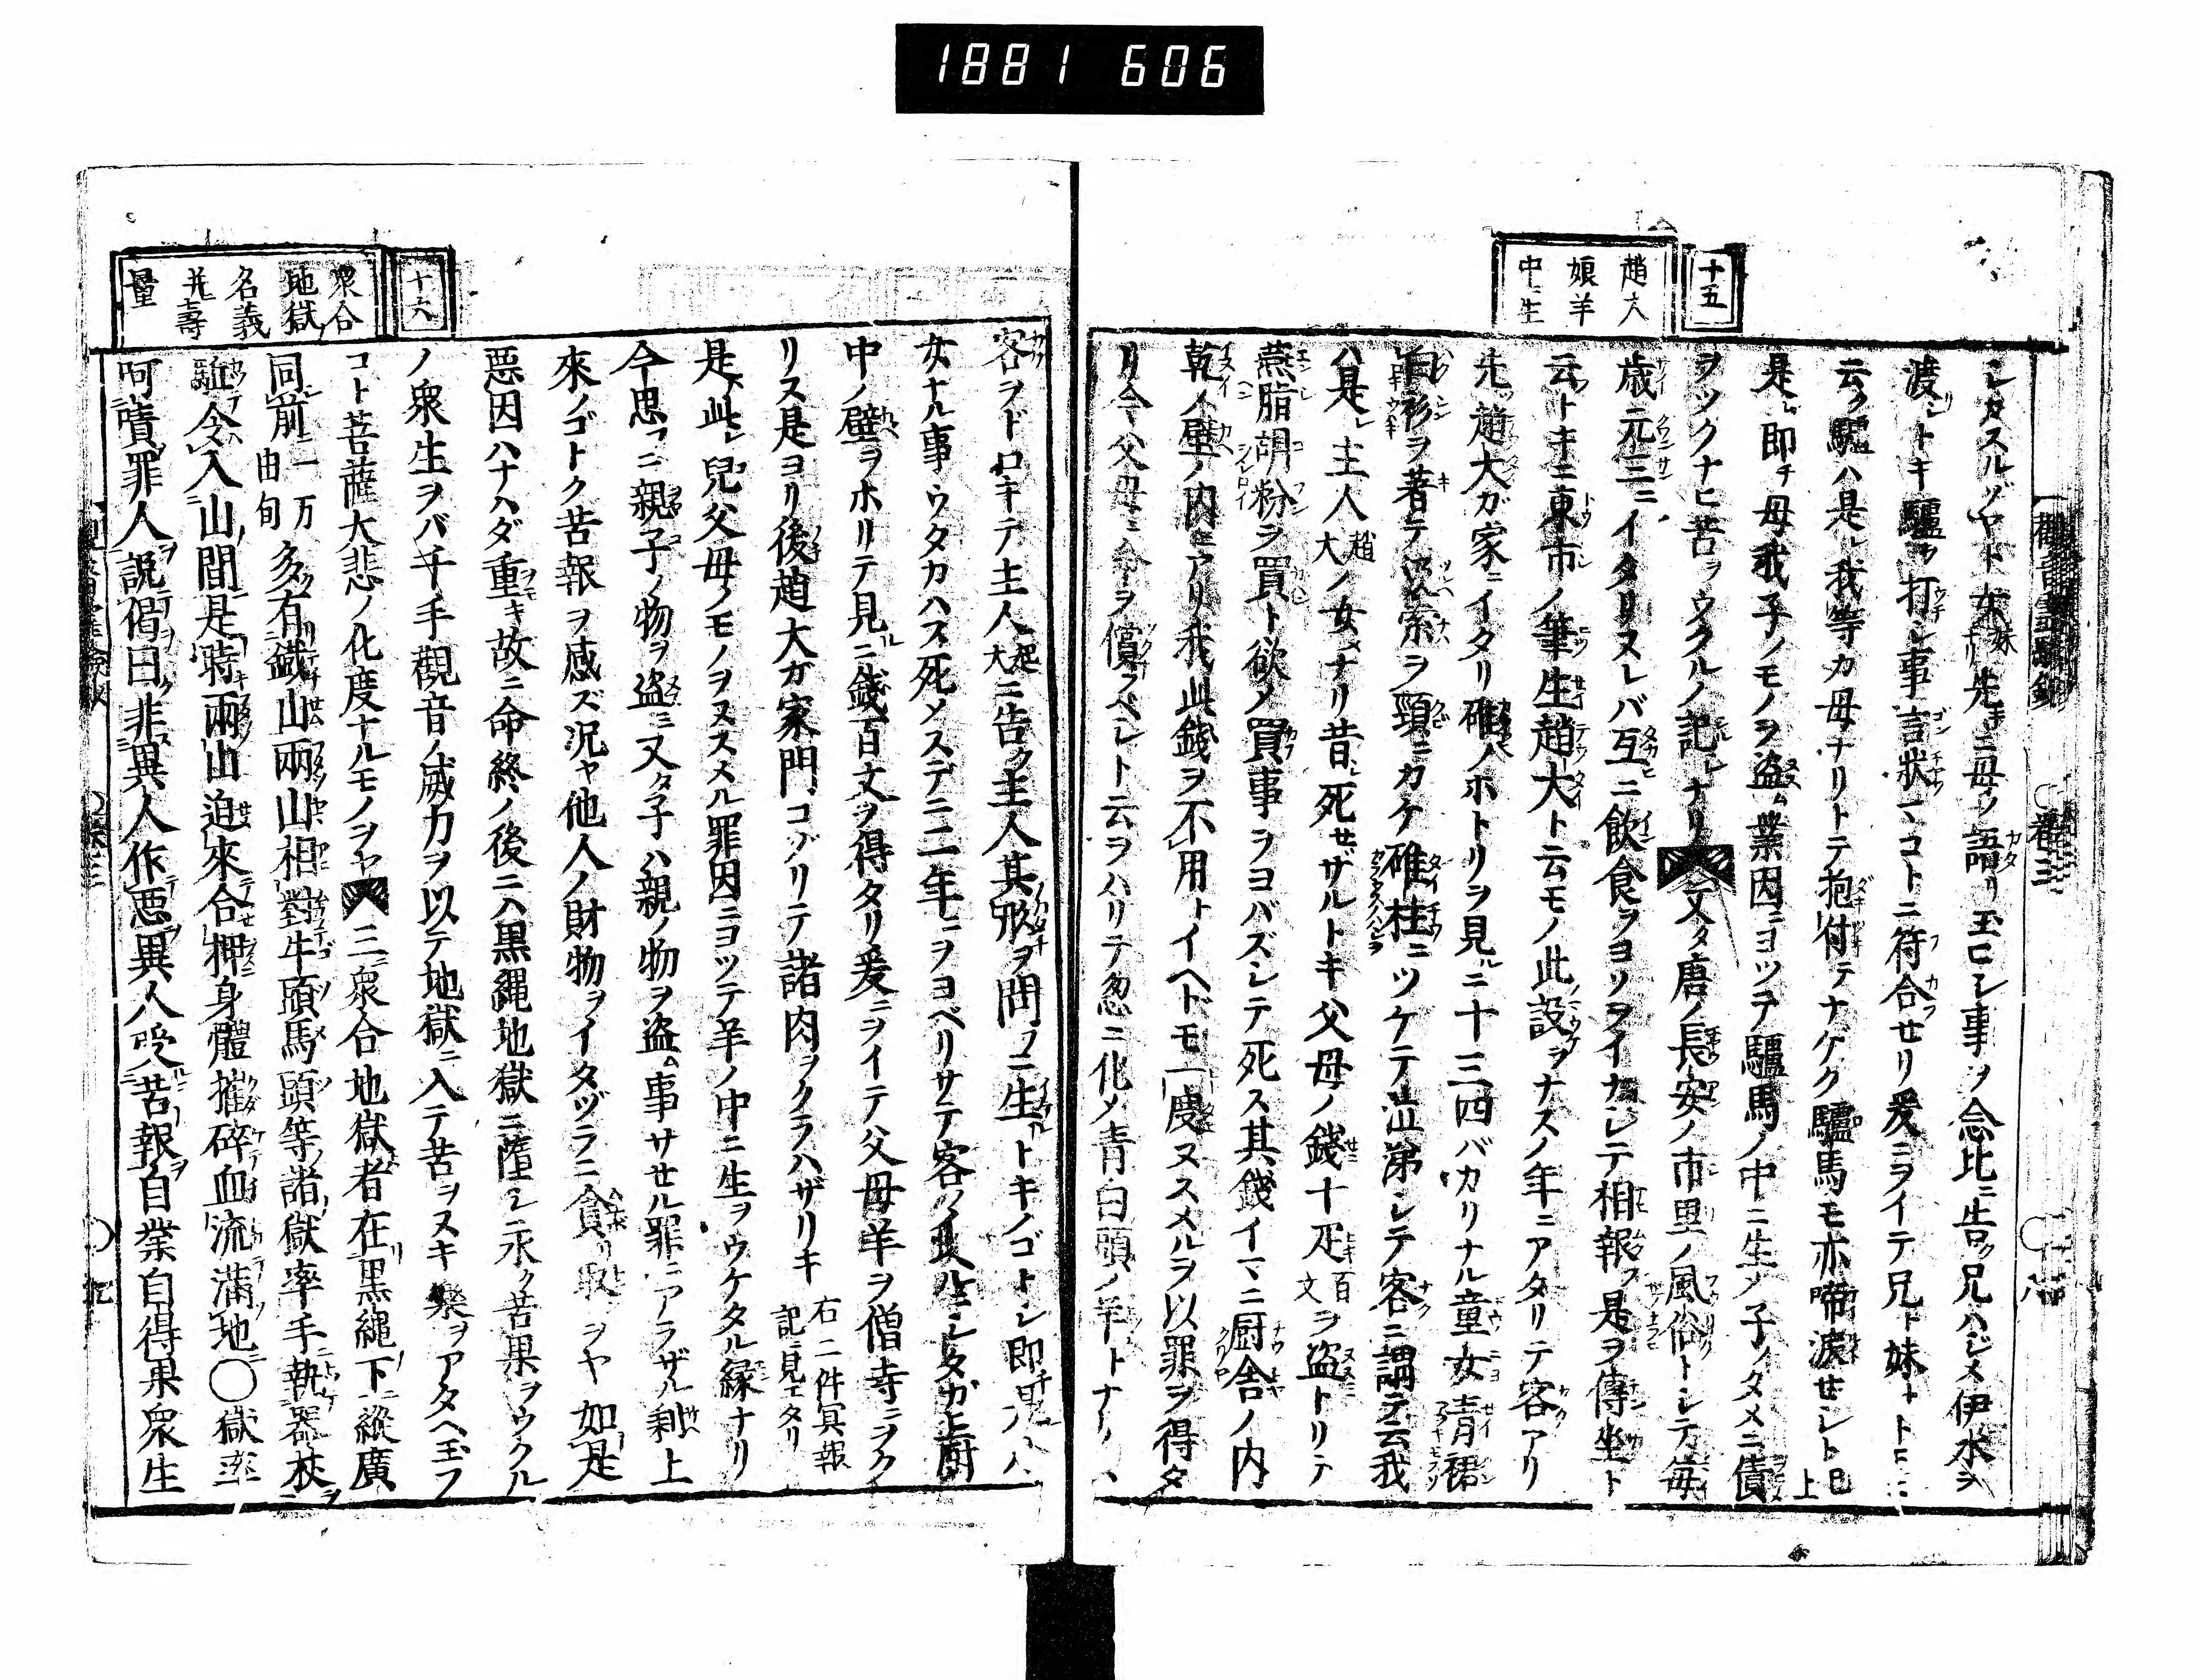 1881 606
十五
趙大
娘羊
中ニ生
シタスルゾヤト女妹先キニ母ノ語リ玉ヒシ事ヲ念比ニ告ク兄ハジメ伊水ヲ
渡シトキ驢ヲ打シ事言狀マコトニ符合セリ爰ニヲイテ兄ト妹トトモニ
云ク驢ハ是レ我等カ母ナリトテ抱付テナゲク驢馬モ亦啼淚セシト已上
是レ即チ母我子ノモノヲ盗ム業因ニヨツテ驢馬ノ中ニ生ノ子ノタメニ債
ヲツクナヒ苦ヲウクルノ記シナリ又タ唐ノ長安ノ市里ノ風俗トシテ毎
歳元三ニイタリヌレバ互ニ飲食ヲヨリヲイナシテ相報フ是ヲ傳坐ト
云フトキニ東市ノ筆生趙大ト云モノ此設ヲナスノ年ニアタリテ客アリ
先ツ趙大ガ家ニイタリ碓ノホトリヲ見ルニ十三四バカリナル童女青裙
白衫ヲ著テ汲索ヲ頸ニカケ碓柱ニツケテ泣涕シテ客ニ謂テ云我
ハ是レ主人趙大ノ女ナリ昔シ死セザルトキ父母ノ錢十疋百文ヲ盗トリテ
燕脂胡粉ヲ買ト欲メ買事ヲヨバズシテ死ス其錢イマニ厨舎ノ内
乾ノ壁ノ内ニアリ我此錢ヲ不用トイヘドモ一度ヌスメルヲ以罪ヲ得タ
リ今父母ニ命ヲ償フベシト云ヲハリテ忽ニ化メ青白頭ノ羊トナ
客ヲドロキテ主人趙大ニ告ク主人其形ヲ問フニ生トキノゴトシ即
女ナル事ウタカハス死ノステニ二年ニヲヨベリサテ客
中ノ壁ヲホリテ見ルニ錢百文ヲ得タリ爰ニヲイテ父母羊ヲ僧寺ニヲク
リス是ヨリ後趙大ガ家門コゾリテ諸肉ヲクラハザリキ右二件冥報記ニ見エタリ
是レ此レ兒父母ノモノヲヌスメル罪因ニヨツテ羊ノ中ニ生ヲウケタル縁ナリ
今思フニ親子ノ物ヲ盗ミ又タ子ハ親ノ物ヲ盗ム事サセル罪ニアラザル剰上
來ノゴトク苦報ヲ感ズ况ヤ他人ノ財物ヲイタヅラニ貪リ取ヲヤ如是
悪因ハナハダ重キ故ニ命終ノ後ニハ黒縄地獄ニ墮シ永ク苦果ヲウクル
ノ衆生ヲバ千手觀音ノ威力ヲ以テ地獄ニ入テ苦ヲヌキ樂ヲアタヘ玉フ
コト菩薩大悲ノ化度ナルモノヲヤ三衆合地獄者在黒繩下縱廣
同前一万由旬多有鐵山兩山相對牛頭馬頭等諸獄率手執器杖
驅令入山間是時兩山迫來合押身體摧碎血流滿地〇獄率
呵嘖罪人説偈曰非異人作悪異人受苦報自業自得果衆生
十六
衆合
地獄
名義
并壽
量